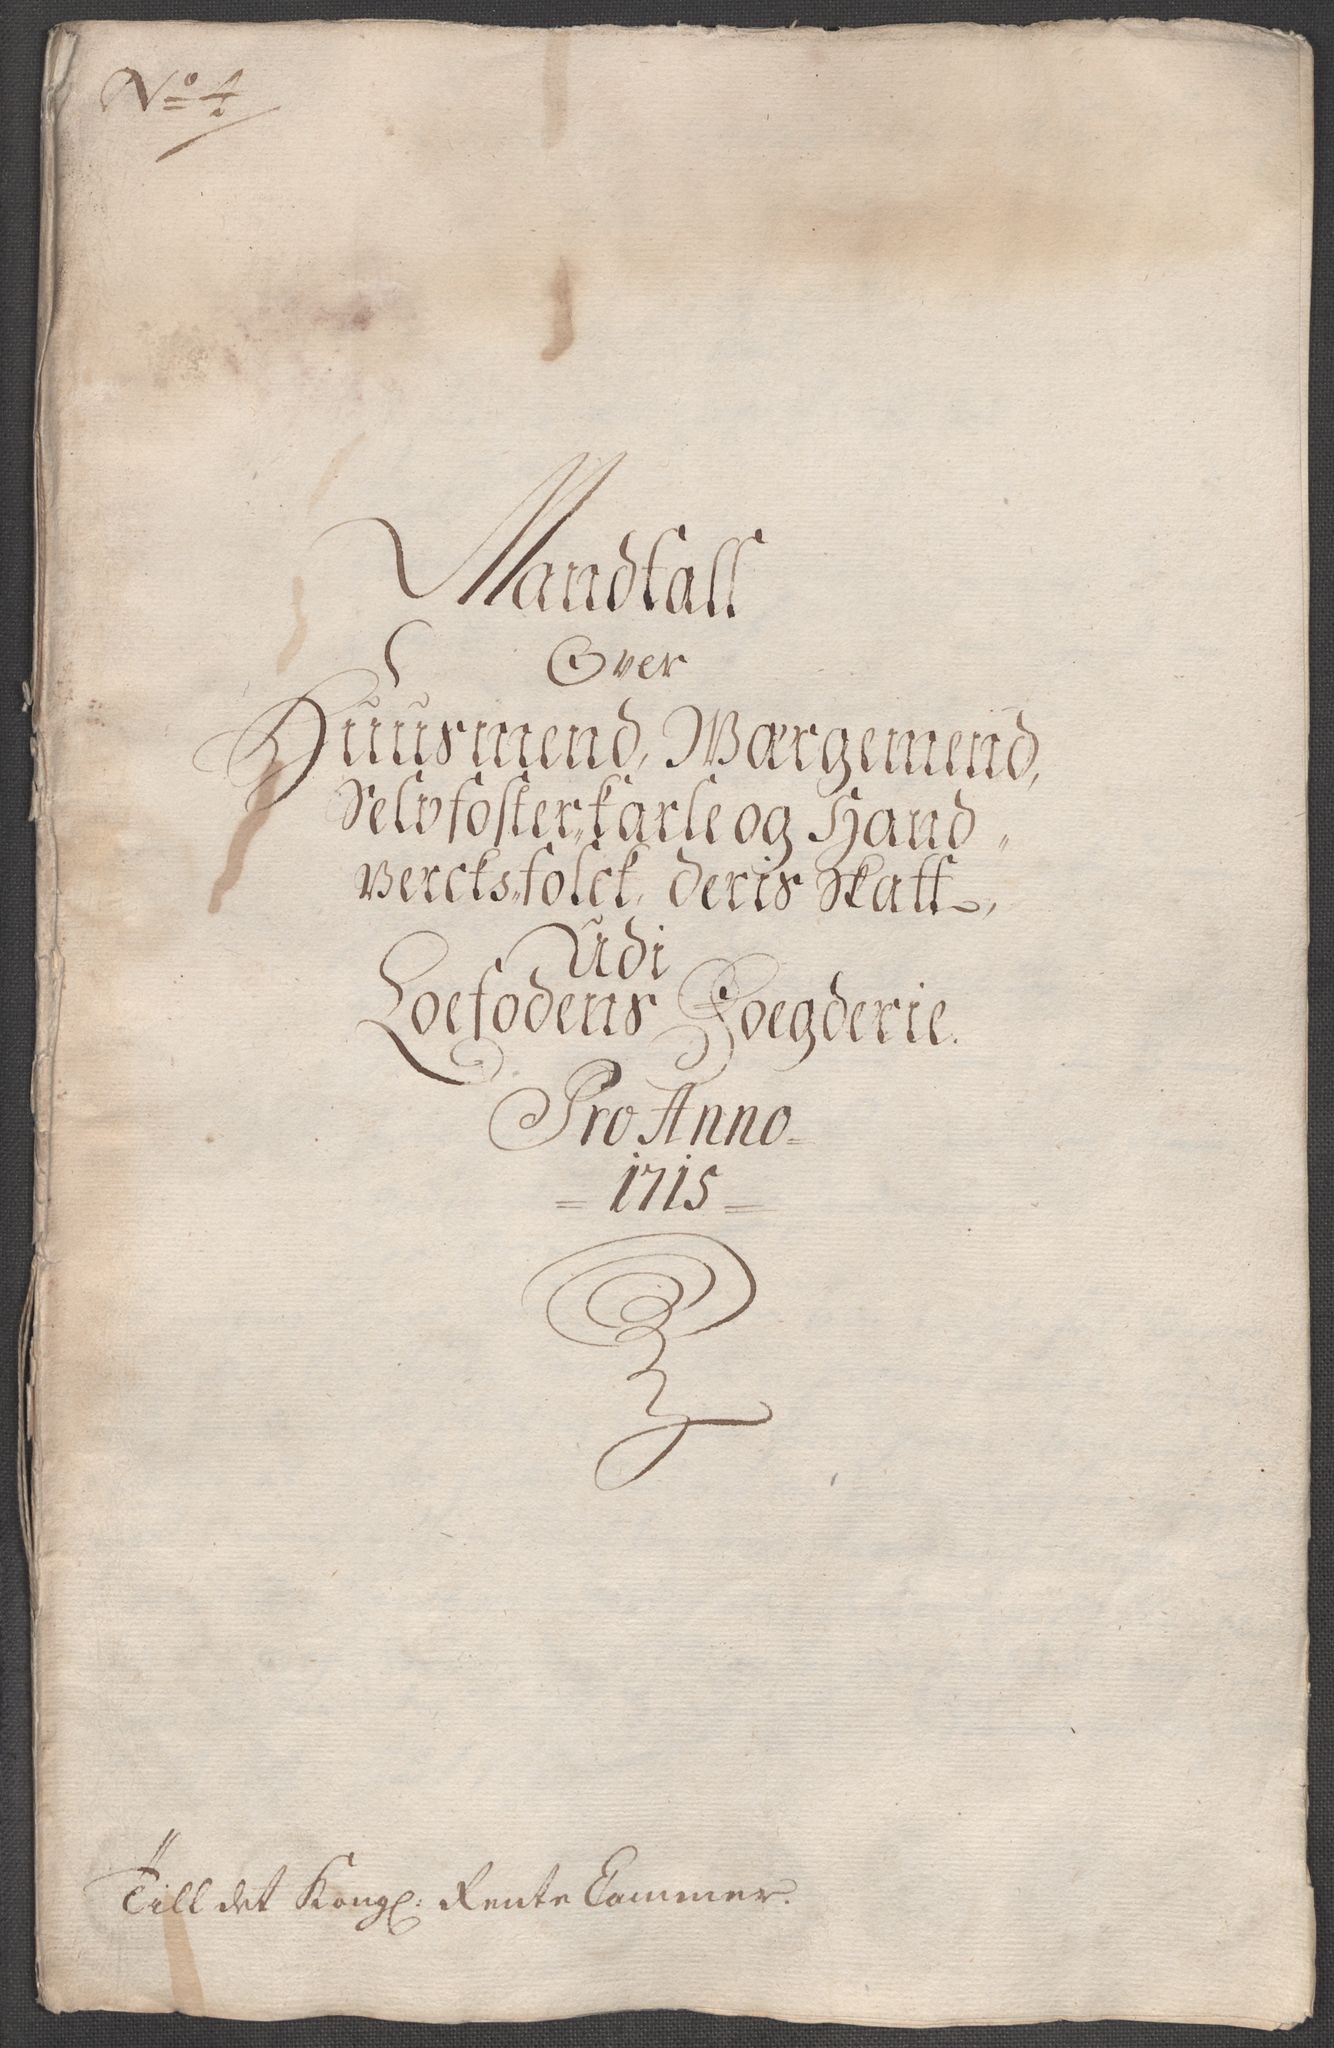 No 4
Mandtall
Over
Huusmend, Wærgemend,
Selvfosterkarle og Hand-
vercksfolck, deris Skatt,
Udi
Loefodens Foegderie.
Pro Anno
1715
Till det Kongl: Rente Cammer.